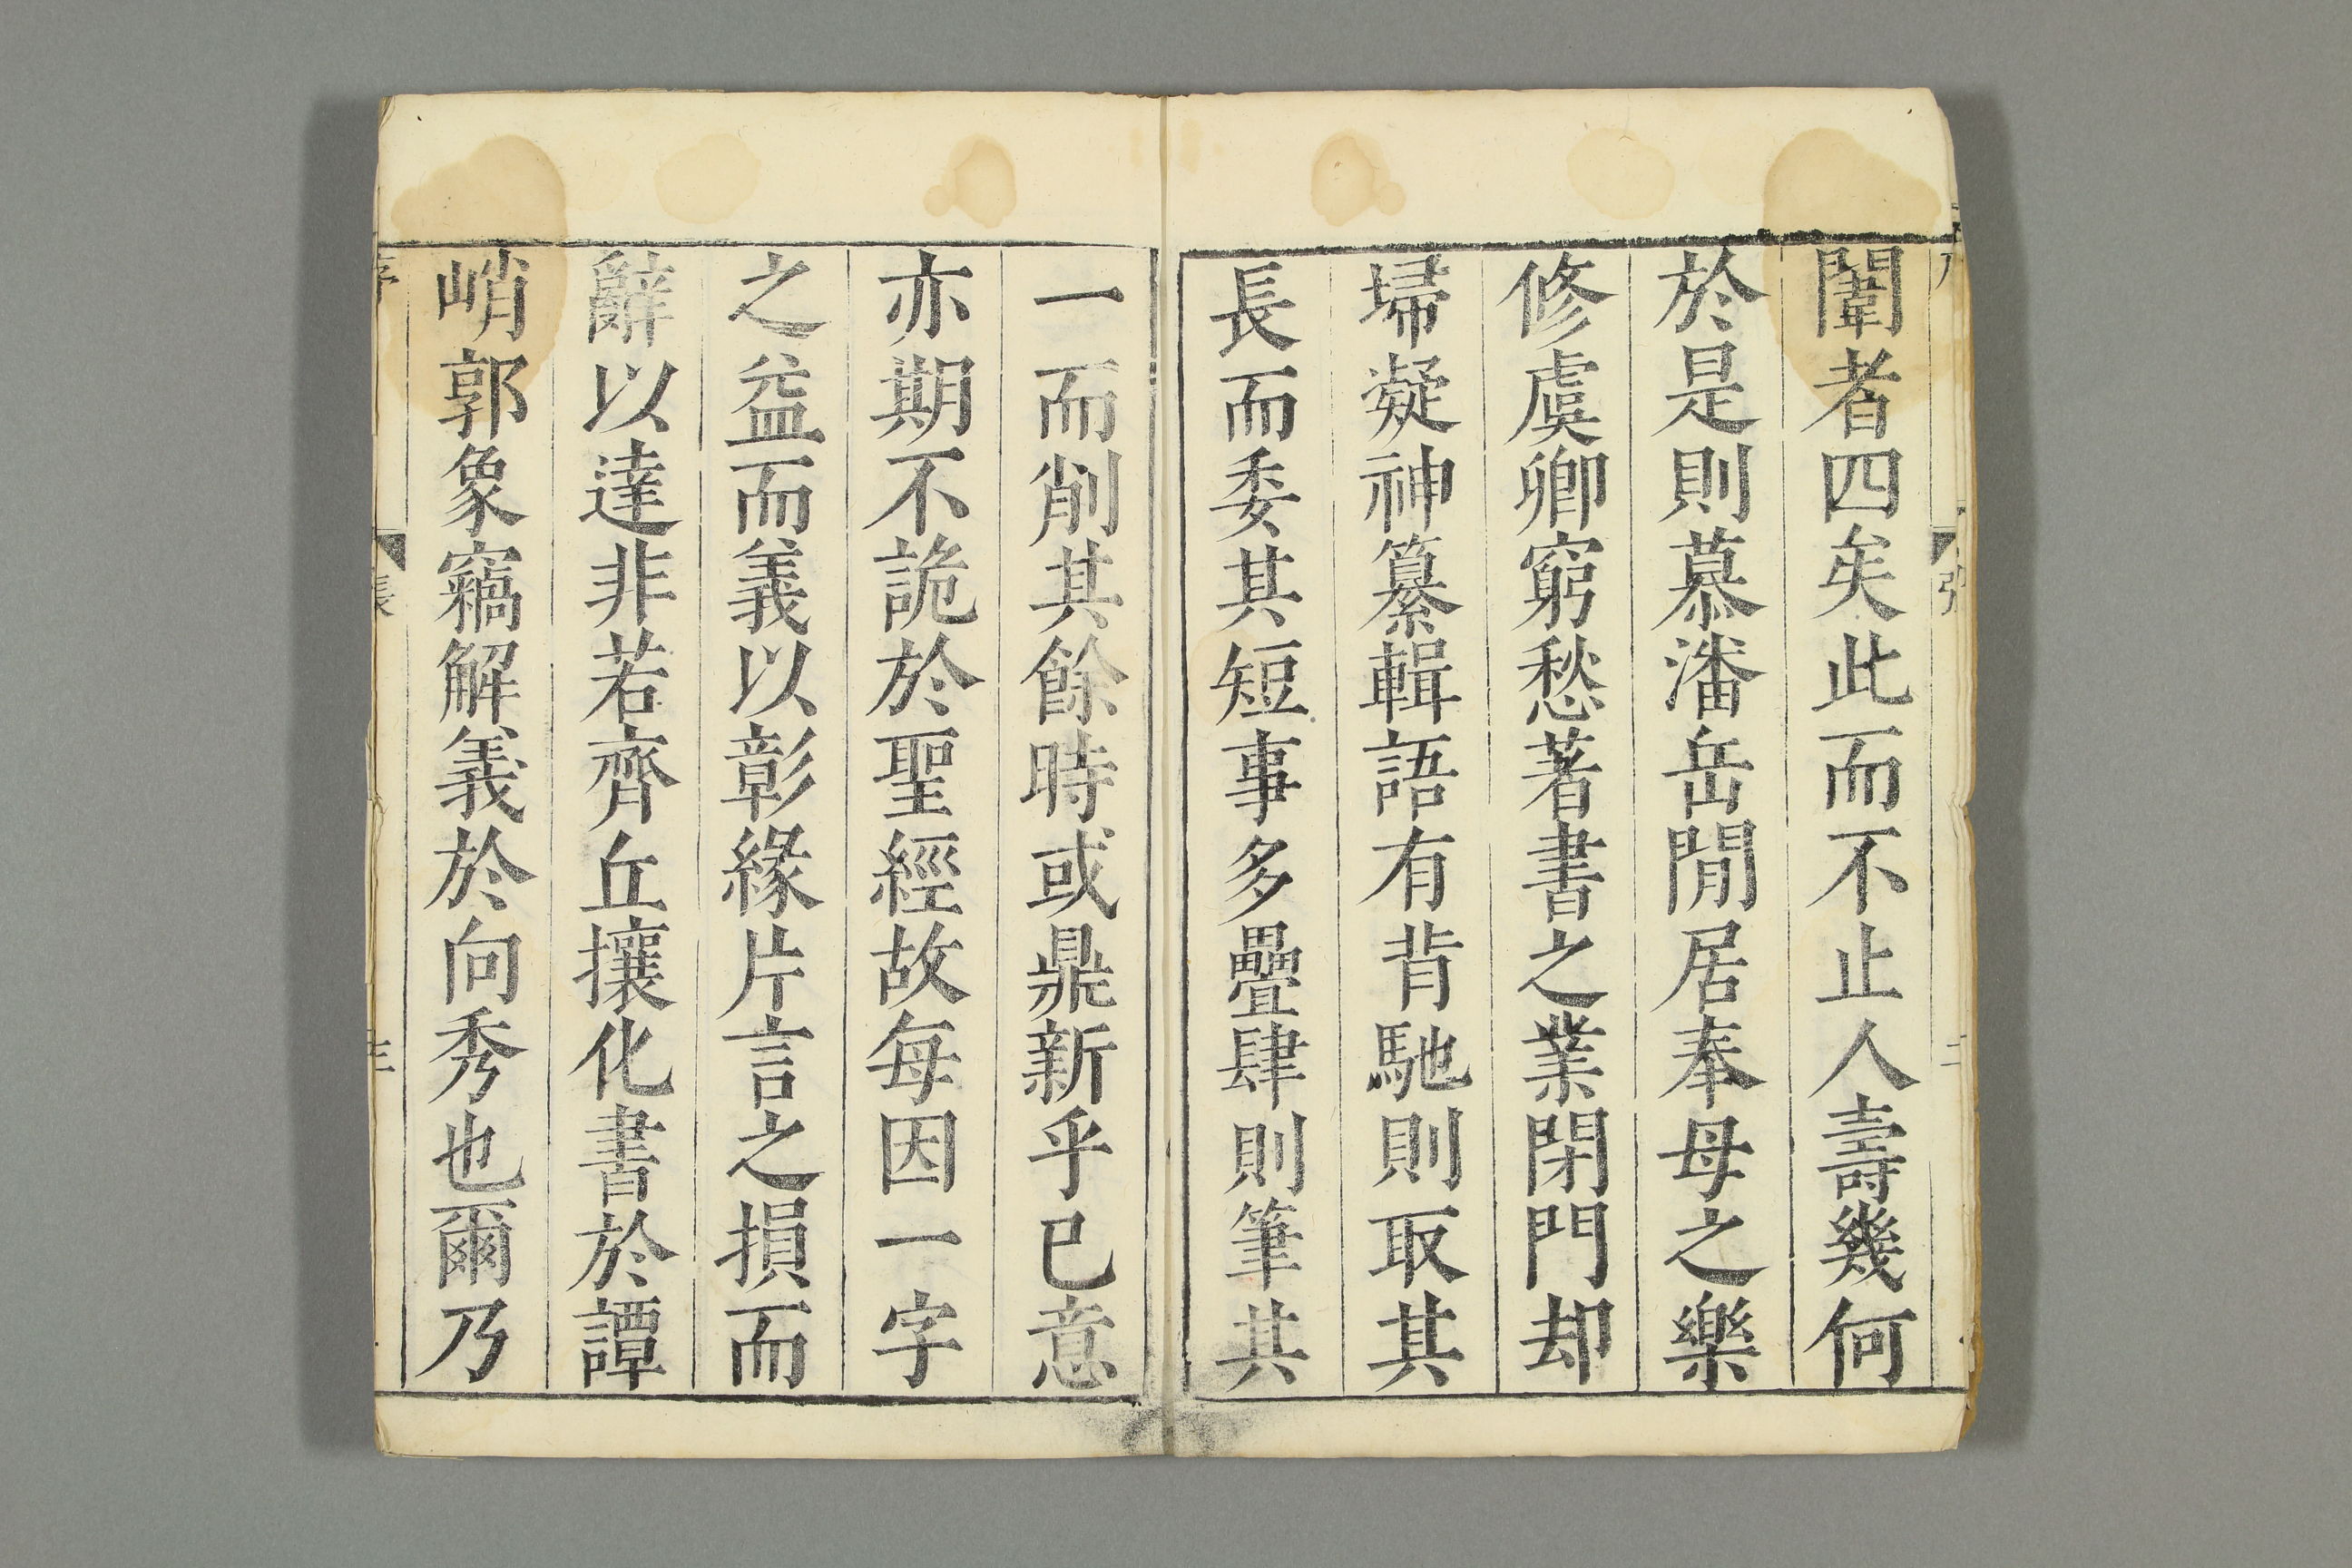 闈者四矣此而不止人壽幾何
於是則慕潘岳閒居奉母之樂
修虞卿窮愁著書之業閉門却
埽凝神纂輯語有背馳則取其
長而委其短事多疊肆則筆其
一而削其餘時或鼎新乎已意
亦期不詭於聖經故每因一字
之益而義以彰緣片言之損而
辭以達非若齊丘攘化書於譚
峭郭象竊解義於向秀也爾乃